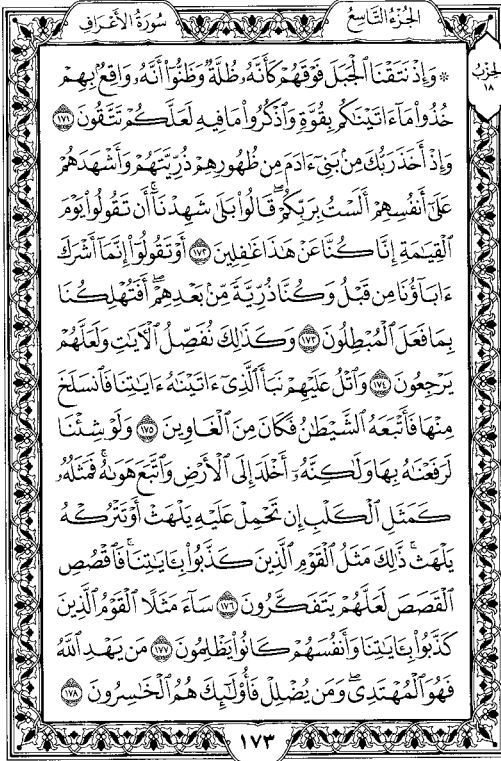 سُورَةُ الأَعْرَافِ
الجُزْءُ التَّاسِعُ
لحِزْبُ
١٨
۞ وَإِذْ نَتَقْنَا ٱلْجَبَلَ فَوْقَهُمْ كَأَنَّهُۥ ظُلَّةٌ وَظَنُّوٓا۟ أَنَّهُۥ وَاقِعٌۢ بِهِمْ
خُذُوا۟ مَآ ءَاتَيْنَٰكُم بِقُوَّةٍ وَٱذْكُرُوا۟ مَا فِيهِ لَعَلَّكُمْ تَتَّقُونَ ١٧١
وَإِذْ أَخَذَ رَبُّكَ مِنۢ بَنِىٓ ءَادَمَ مِن ظُهُورِهِمْ ذُرِّيَّتَهُمْ وَأَشْهَدَهُمْ
عَلَىٰٓ أَنفُسِهِمْ أَلَسْتُ بِرَبِّكُمْ ۖ قَالُوا۟ بَلَىٰ شَهِدْنَآ ۛ أَن تَقُولُوا۟ يَوْمَ
ٱلْقِيَٰمَةِ إِنَّا كُنَّا عَنْ هَٰذَا غَٰفِلِينَ ١٧٢ أَوْ تَقُولُوٓا۟ إِنَّمَآ أَشْرَكَ
ءَابَآؤُنَا مِن قَبْلُ وَكُنَّا ذُرِّيَّةً مِّنۢ بَعْدِهِمْ ۖ أَفَتُهْلِكُنَا
بِمَا فَعَلَ ٱلْمُبْطِلُونَ ١٧٣ وَكَذَٰلِكَ نُفَصِّلُ ٱلْءَايَٰتِ وَلَعَلَّهُمْ
يَرْجِعُونَ ١٧٤ وَٱتْلُ عَلَيْهِمْ نَبَأَ ٱلَّذِىٓ ءَاتَيْنَٰهُ ءَايَٰتِنَا فَٱنسَلَخَ
مِنْهَا فَأَتْبَعَهُ ٱلشَّيْطَٰنُ فَكَانَ مِنَ ٱلْغَاوِينَ ١٧٥ وَلَوْ شِئْنَا
لَرَفَعْنَٰهُ بِهَا وَلَٰكِنَّهُۥٓ أَخْلَدَ إِلَى ٱلْأَرْضِ وَٱتَّبَعَ هَوَىٰهُ ۚ فَمَثَلُهُۥ
كَمَثَلِ ٱلْكَلْبِ إِن تَحْمِلْ عَلَيْهِ يَلْهَثْ أَوْ تَتْرُكْهُ
يَلْهَث ۚ ذَّٰلِكَ مَثَلُ ٱلْقَوْمِ ٱلَّذِينَ كَذَّبُوا۟ بِـَٔايَٰتِنَا ۚ فَٱقْصُصِ
ٱلْقَصَصَ لَعَلَّهُمْ يَتَفَكَّرُونَ ١٧٦ سَآءَ مَثَلًا ٱلْقَوْمُ ٱلَّذِينَ
كَذَّبُوا۟ بِـَٔايَٰتِنَا وَأَنفُسَهُمْ كَانُوا۟ يَظْلِمُونَ ١٧٧ مَن يَهْدِ ٱللَّهُ
فَهُوَ ٱلْمُهْتَدِى ۖ وَمَن يُضْلِلْ فَأُو۟لَٰٓئِكَ هُمُ ٱلْخَٰسِرُونَ ١٧٨
١٧٣